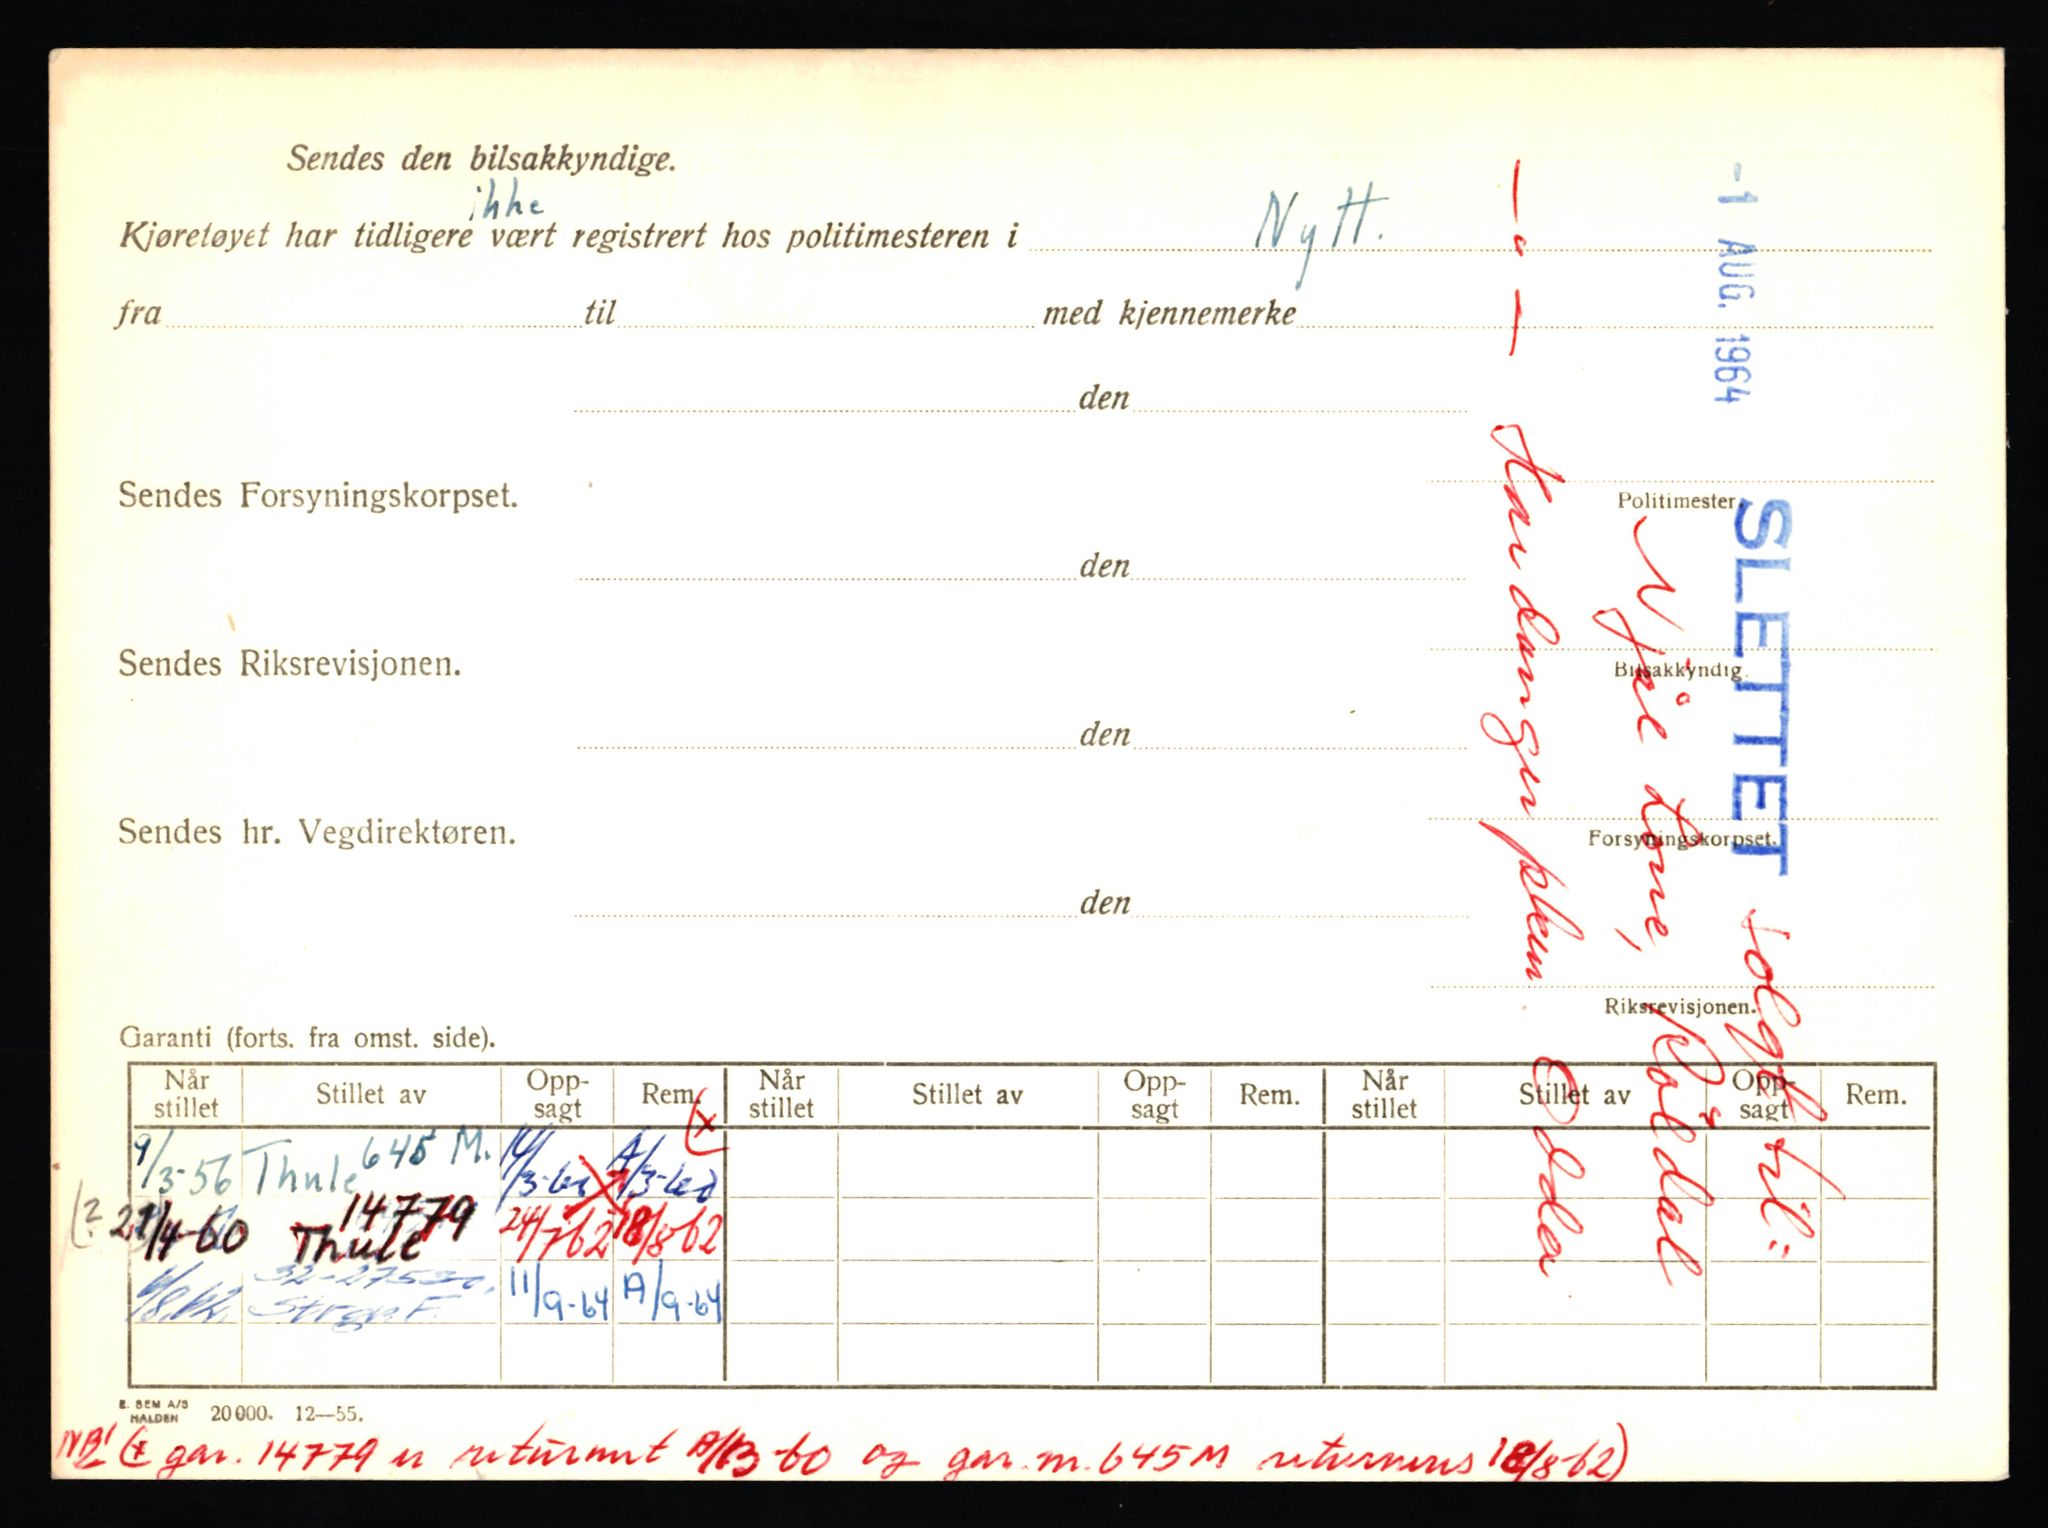 Sendes den bilsakkyndige.
ikke
Kjøretøyet har tidligere vært registrert hos politimesteren i Nytt.
fra til med kjennemerke
den
Politimester.
Sendes Forsyningskorpset.
den
Bilsakkyndig.
Sendes Riksrevisjonen.
den
Forsyningskorpset.
Sendes hr. Vegdirektøren.
den
Riksrevisjonen.
-1 AUG. 1964
SLETTET solgt til:
Røldal
Hardangerplan. Odda
Garanti (forts. fra omst. side).
Når stillet Stillet av Opp- sagt Rem. Når stillet Stillet av Opp- sagt Rem. Når stillet Stillet av Opp- sagt Rem.
(x
9/3-56 Thule 645 M. 14/3-60 A/3-60
(? 21/4-60 Thule 14779 24/7 62 18/8-62
32-27530.
/8.62. 11/9-64 A/9-64
E. SEM A/S HALDEN 20000. 12—55.
NB! (x gar. 14779 er returnert /3-60 og gar. m. 645 M returneres 18/8-62)